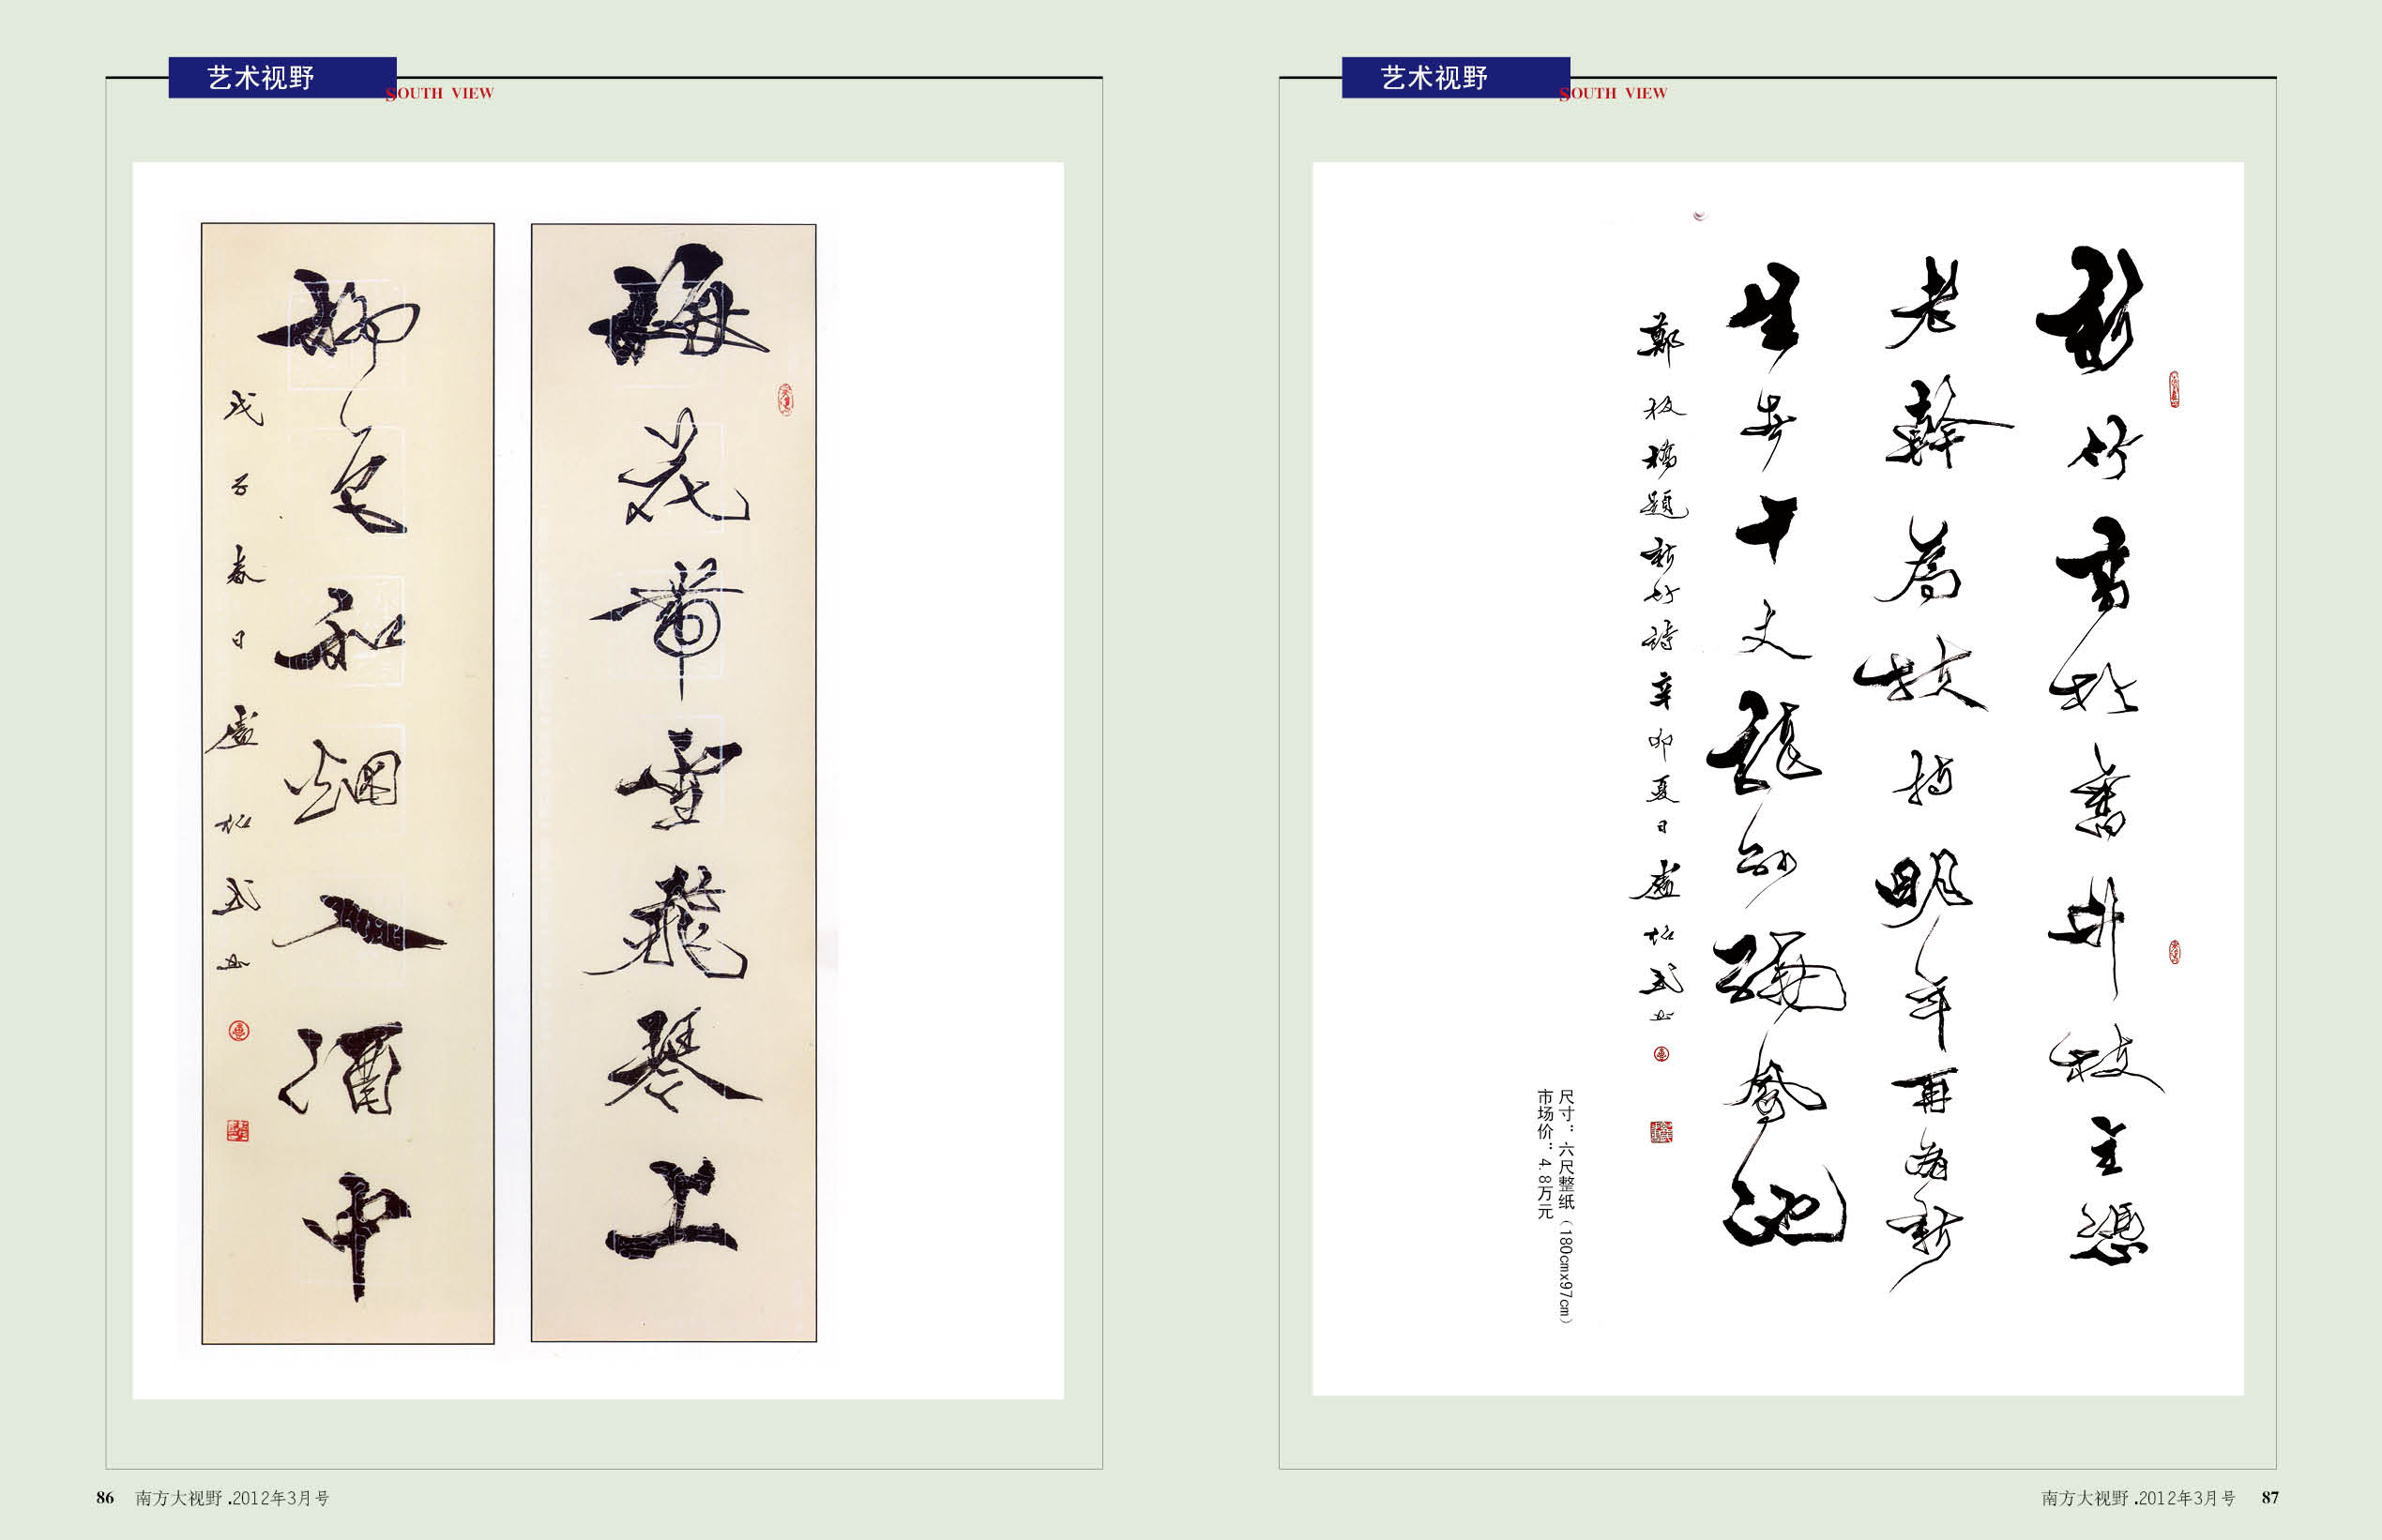 艺术视野
SOUTH VIEW
梅花帶雪飛琴上
柳色和烟入酒中
戊子春日盧松武书
86 南方大视野.2012年3月号
艺术视野
SOUTH VIEW
新竹高於舊竹枝全憑
老幹為扶持明年再有新
生者十丈龍孫繞鳳池
鄭板橋題新竹詩辛卯夏日盧松武书
尺寸：六尺整纸（180cmx97cm）
市场价：4.8万元
南方大视野.2012年3月号 87